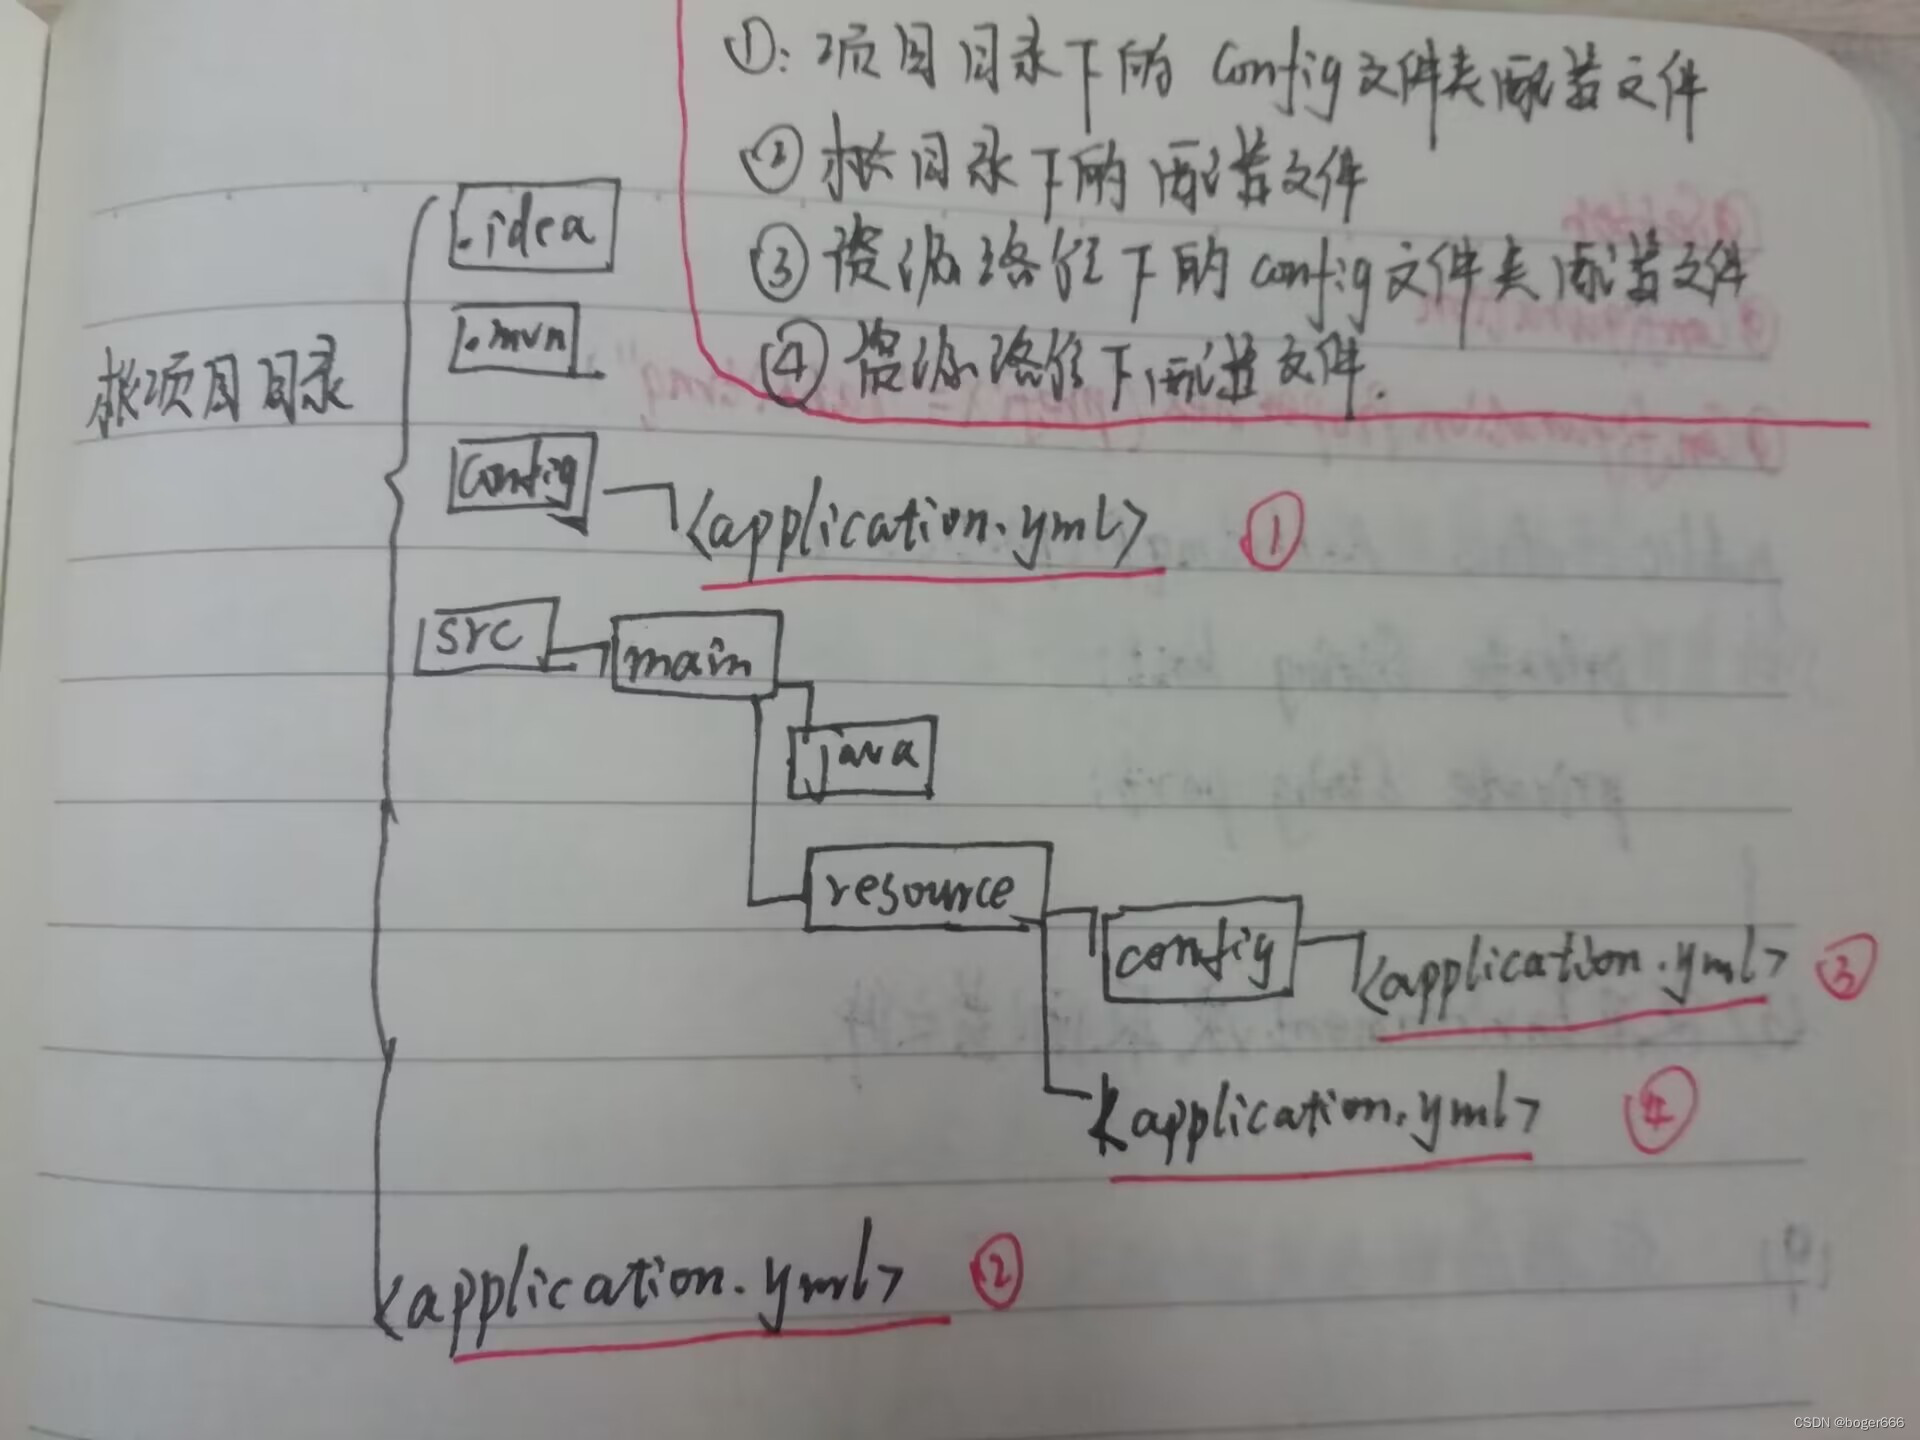 ①: 项目目录下的 config文件夹配置文件
② 根目录下的配置文件
③ 资源路径下的config文件夹配置文件
④ 资源路径下配置文件.
.idea
.mvn
根项目目录
config
<application.yml> ①
src
main
java
resource
config
<application.yml> ③
<application.yml> ④
<application.yml> ②
CSDN @boger666